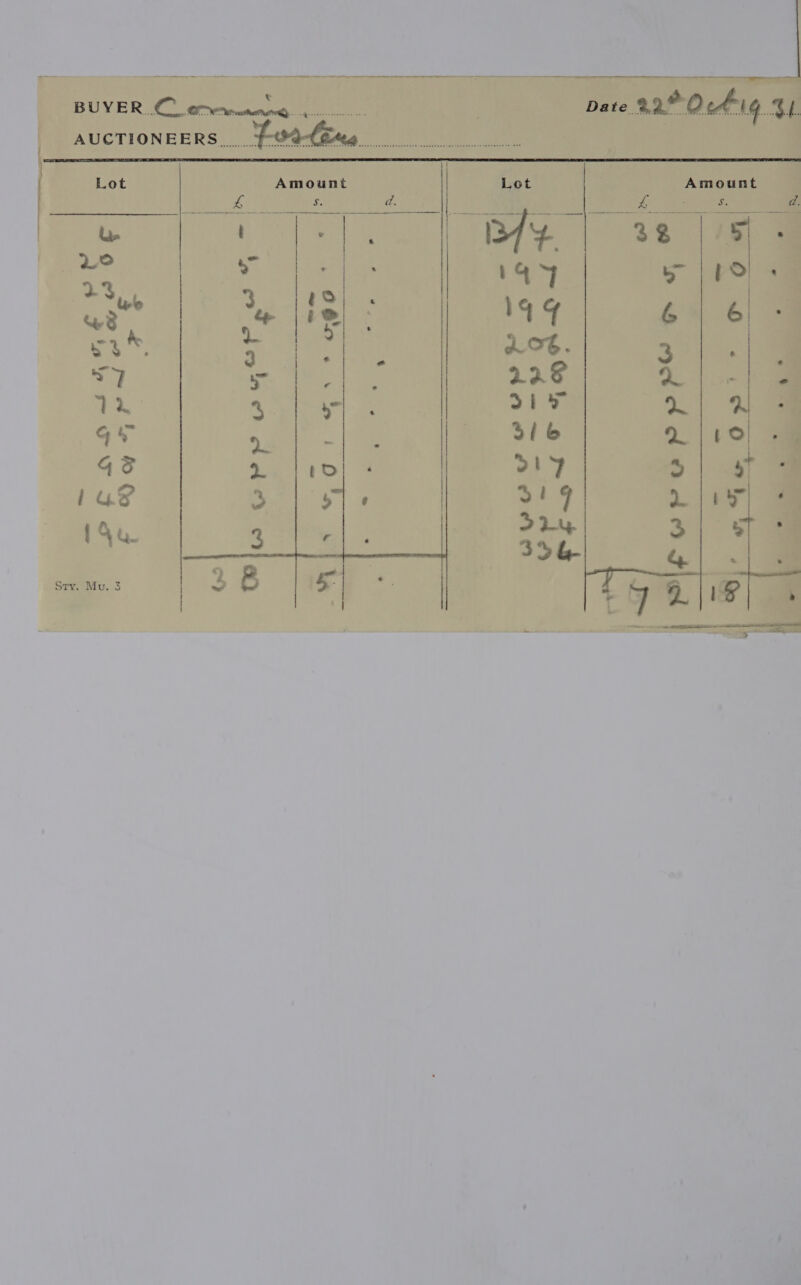 BUYER
Date 22nd Oct 19 31
AUCTIONEERS
Lot Amount Lot Amount
£ s. d. £ s. d.
4 1 . . B/F 38 5 .
20 5 . . 197 5 10 .
23 3 10 . 199 6 6 .
46 4 10
48 2 5 . 206. 3 . .
53A. 3 . . 228 2 - .
57 5 . . 315 2 2 .
72 3 5 . 316 2 10 .
95 2 - . 317 3 5 .
98 2 10 . 319 2 15 .
148 3 5 . 324 3 5 .
194 3 . . 334 4 . .
38 5 . £72 18 .
Sty. Mu. 3